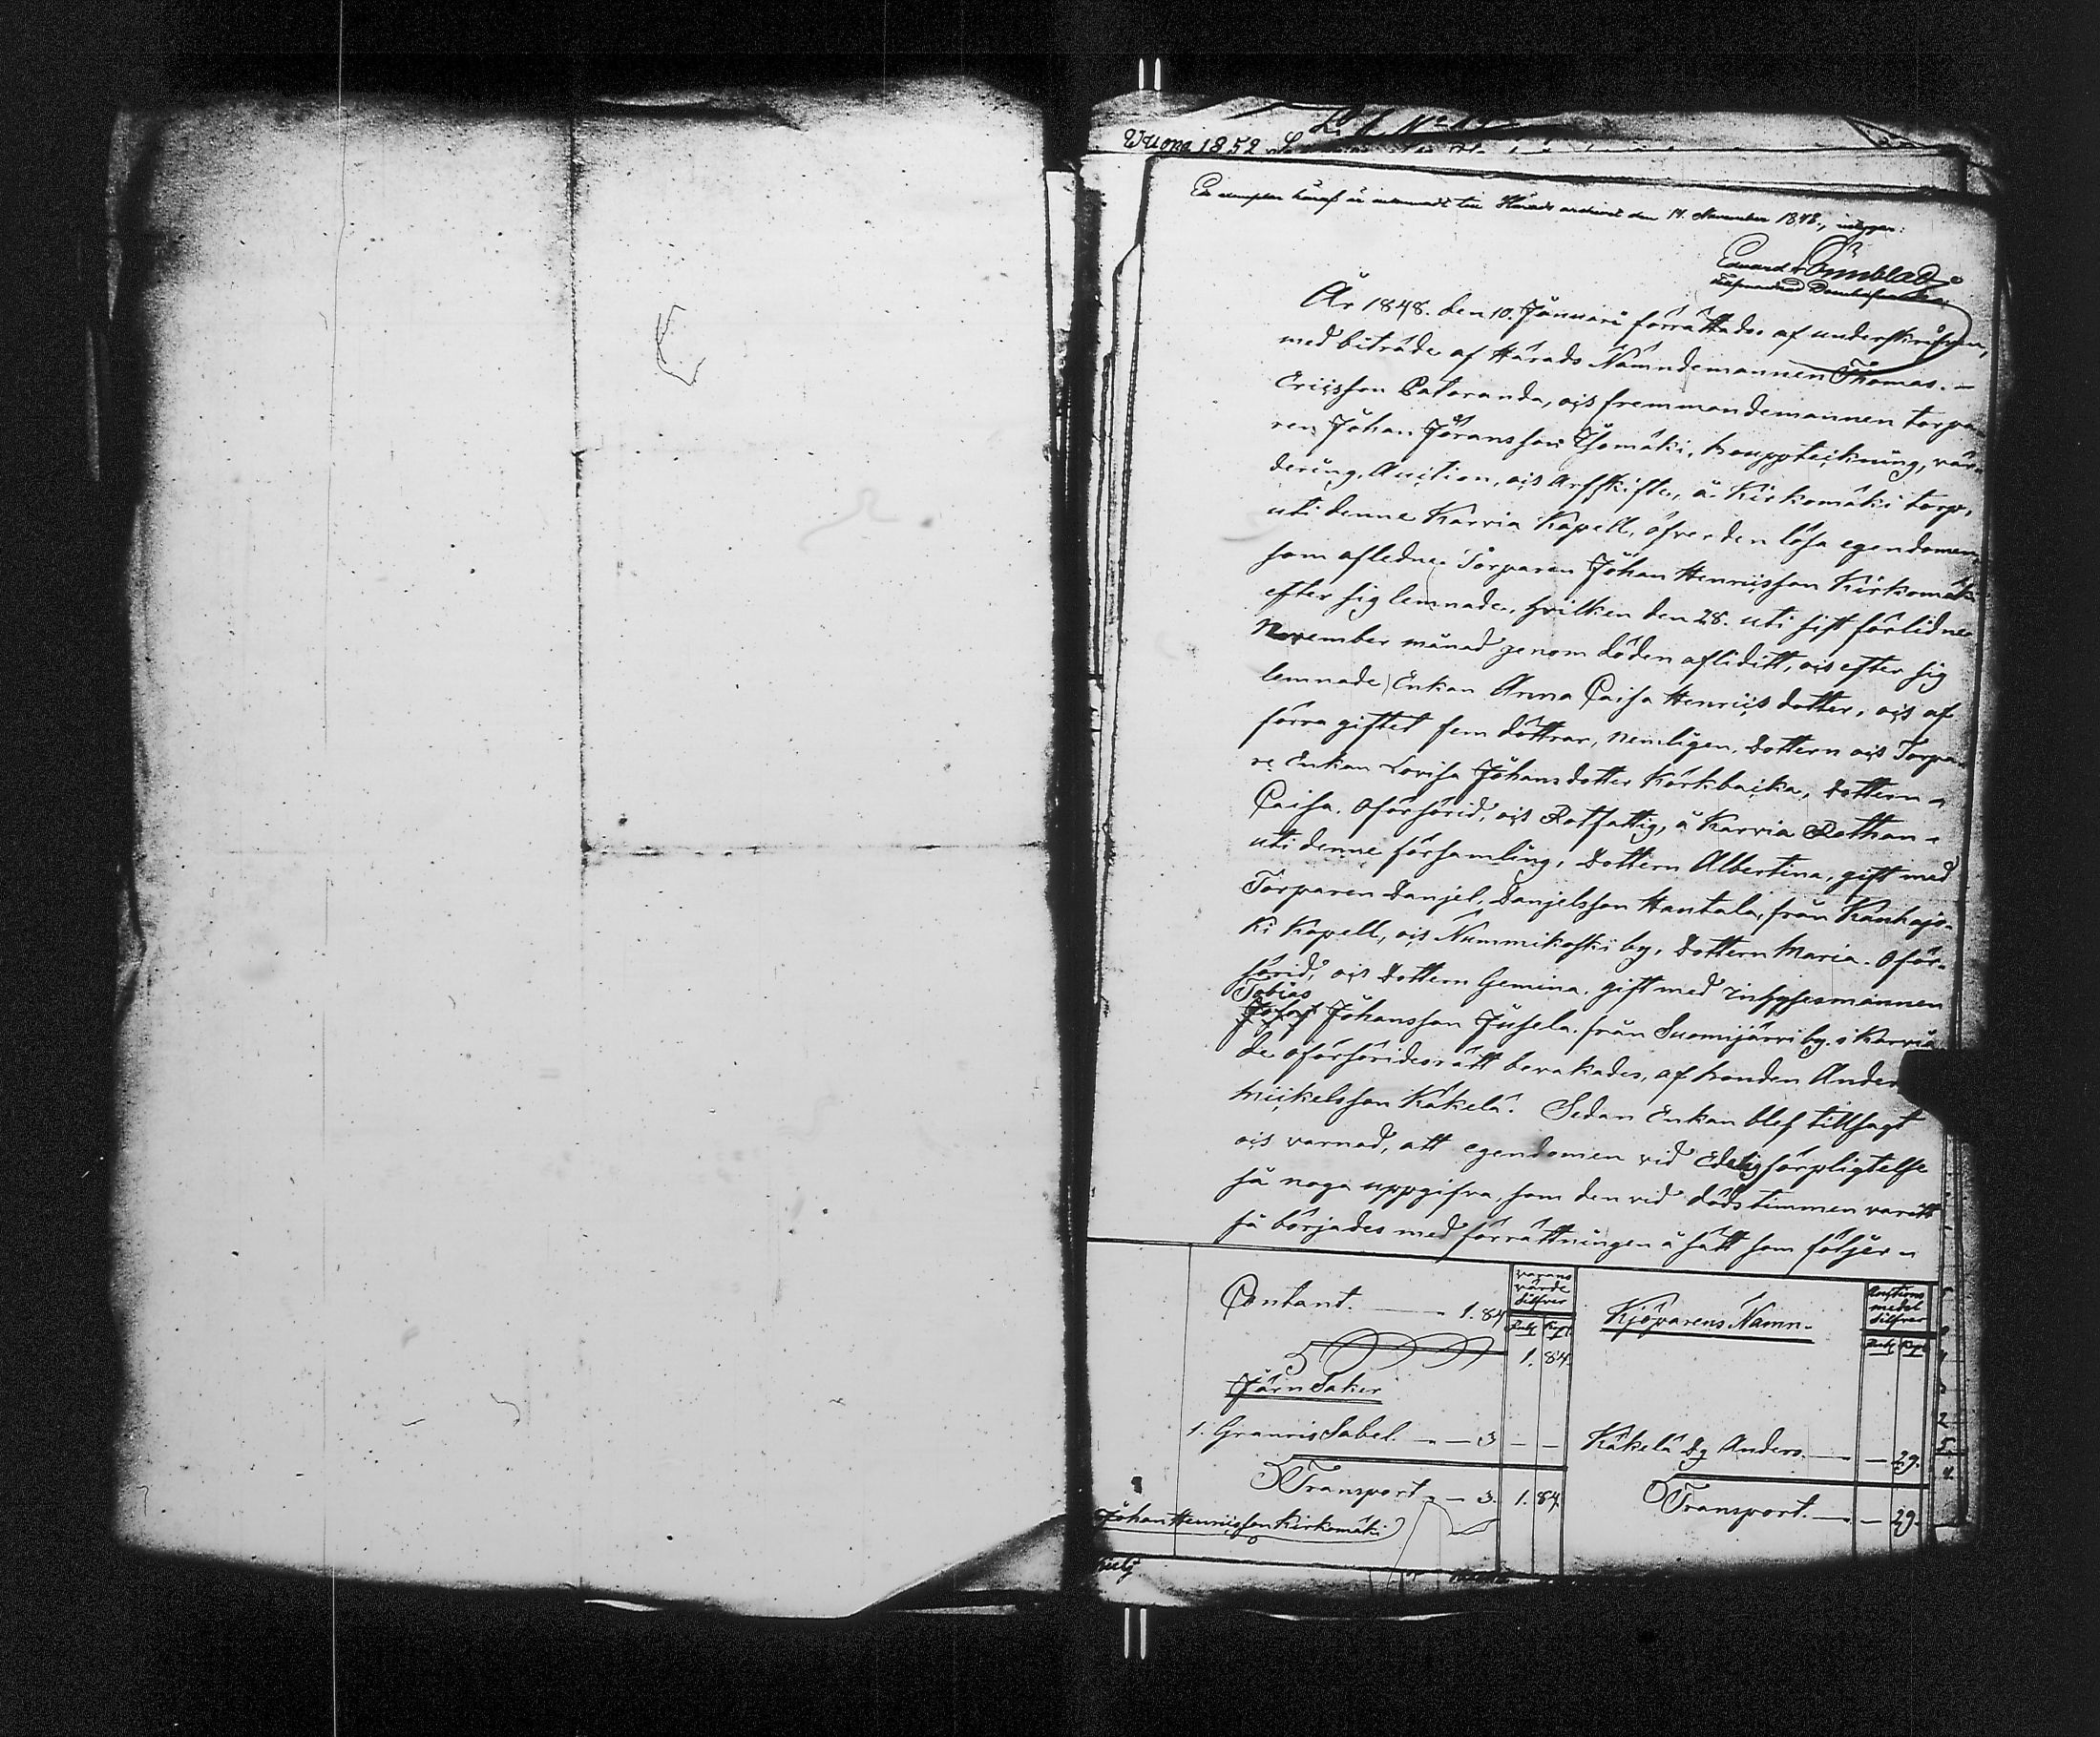 Wuona 1852
Ex emplar häraf är inlemnadt till Härads archivet den 14. November 1848., intygar:
Eduard Lönnblad
År 1848. den 10. Januari förrättades af underskrifven,
med biträde af Härads Nämndemannen Thomas.
Eriicsson Pataranda, ocs fremmandemannen torpa
ren Johan Jöransson Ysomäki, bouppteckning, vär
dering, Auction, ocs Arfskifte, å Kirkomäki torp,
uti denne Karvia Kapell, öfver den lösa egendomen
som afledne Torparen Johan Henricsson Kirkomäki
efter sig lemnade, hvilken den 28. uti sist förlidne
November månad genom döden afliditt, ocs efter sig
lemnade, Enkan Anna Caisa Henrics dotter, ocs af
förra giftet fem döttrar, nemligen, Dottern ocs Torpa
re Enkan Lovisa Johansdotter Korkbacka, Dottern
Caisa. Oförsörid, ocs Rotfattig, å Karvia Rothan
uti denne församling, Dottern Albertina, gift med
Torparen Danjel, Danjelsson Hautala, från Kanhajo-
ki Kapell, ocs Nummikoski by, Dottern Maria. Oför-
sörid, ocs Dottern Gemina. gift med Inhysesmannen
Tobias
Johansson Jusela. från Suomijärvi by. i Karvia
de oförsörides rätt bevakades, af bonden Ander
Mickelsson Käkelä. Sedan Enkan blef tillsagt
ocs varnad, att egendomen vid Edelig förpligtelse
så noga uppgifva, som den vid dödstimmen varitt
så börjades med förrättningen å sätt som följer
Contant. 1. 84 varans värde silfver Kjöparens Namn Auctions medel silfver
Rub Kop Rub Kop
1. 84.
Järn Saker
1. Granris Sabel. 3 – – Käkelä Dg Anders. – 29.
Transport 3. 1. 84 Transport. – 29.
Johan Henricsson Kirkomäki